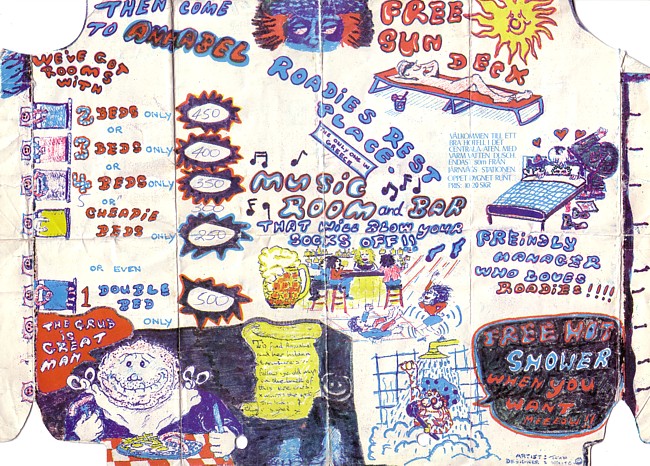 THEN COME
TO ANNABEL
FREE
SUN
DECK
WE'VE GOT
ROOMS
WITH
ROADIES REST
PLACE
THE ONLY ONE IN
GREECE
2 BEDS ONLY
450
OR
3 BEDS ONLY
400
OR
4 BEDS ONLY
350
OR
CHEAPIE
BEDS
ONLY
250
OR EVEN
1 DOUBLE
BED
ONLY
500
VÄLKOMMEN TILL ETT
BRA HOTELL I DET
CENTRALA ATEN, MED
VARM VATTEN DUSCH,
ENDAST 50m FRÅN
JÄRNVÄGS STATIONEN
ÖPPET DYGNET RUNT
MUSIC
ROOM and BAR
THAT WILL BLOW YOUR
SOCKS OFF!!
FREINDLY
MANAGER
WHO LOVES
ROADIES!!!!
THE GRUB
IS
GREAT
MAN
FREE HOT
SHOWER
WHEN YOU
WANT
ARTIST: